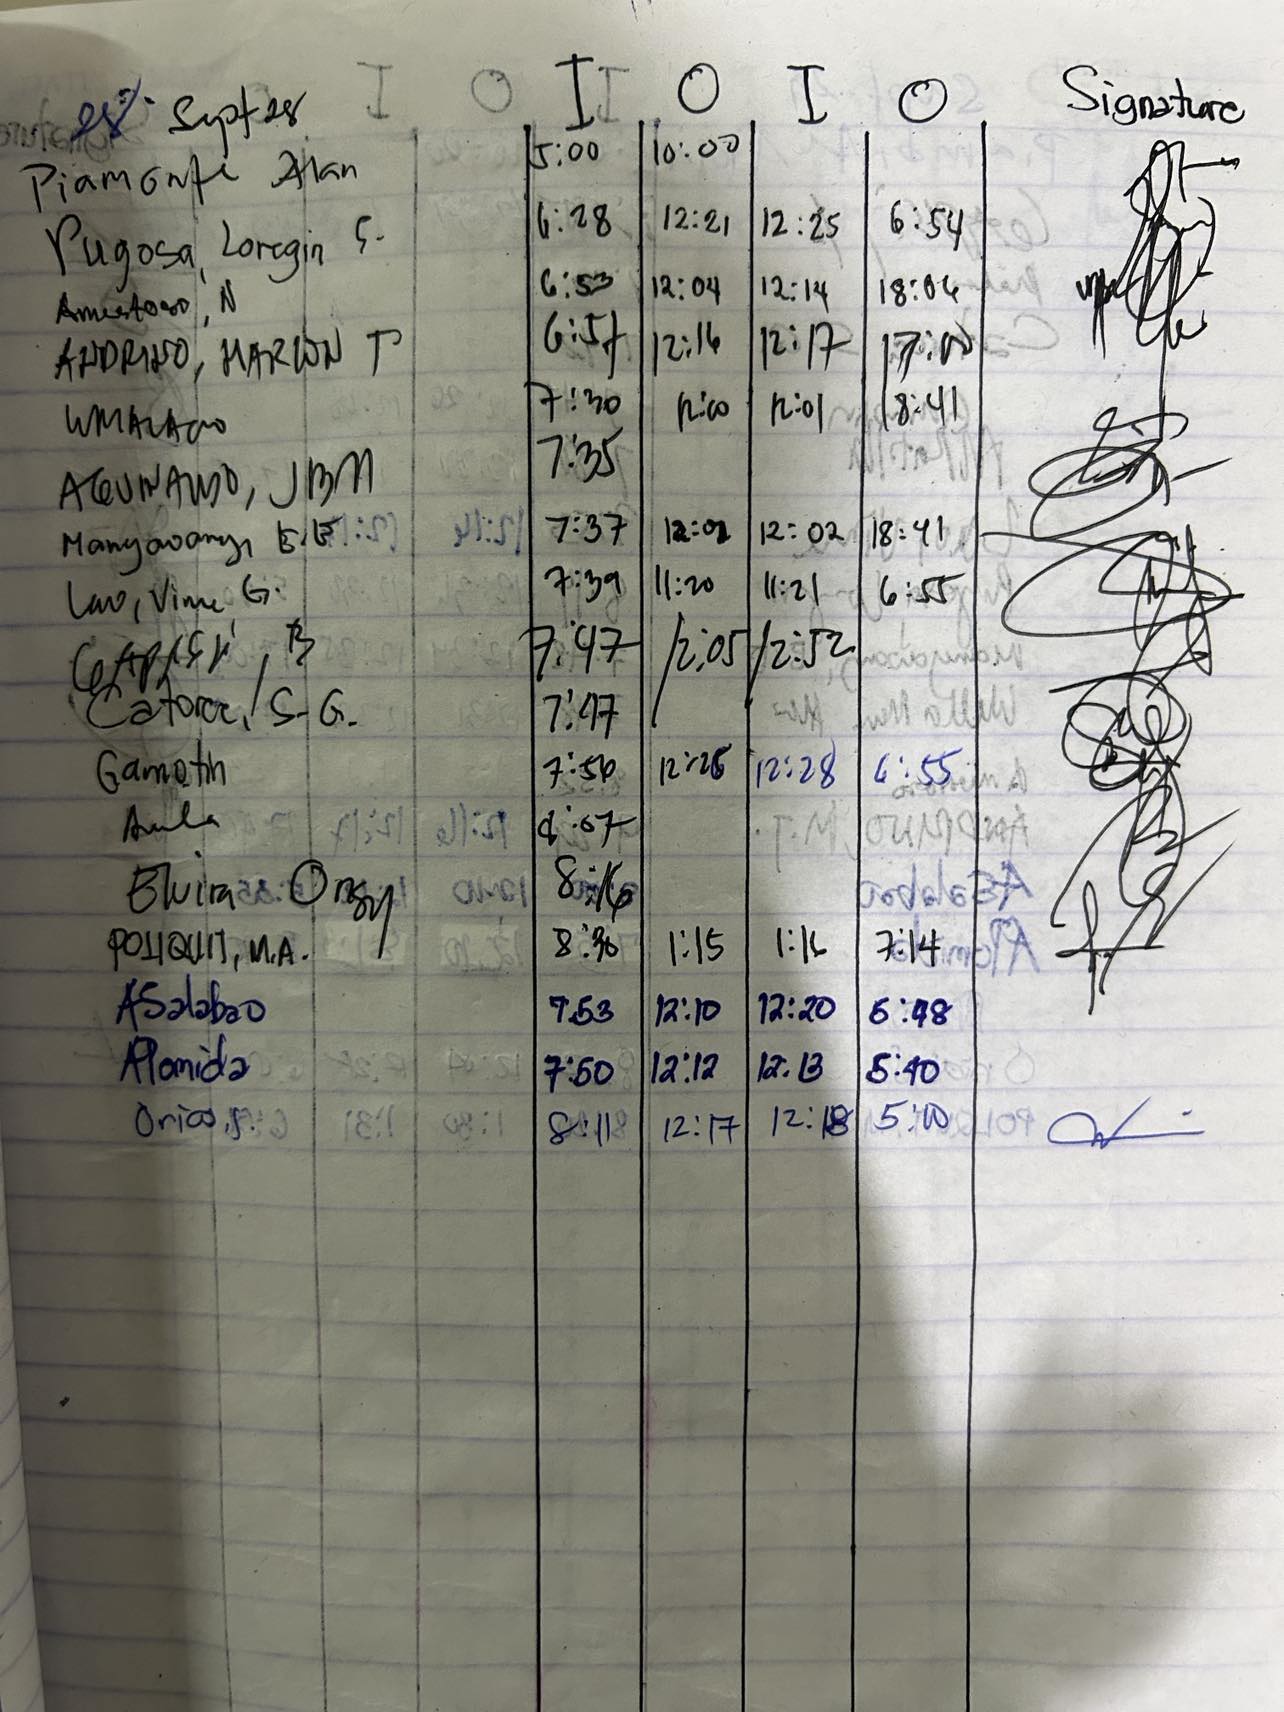 Sept 28 I O I O Signature
Piamonte Alan 5:00 10:00
Pugosa, Loregin S. 6:28 12:21 12:25 6:54
6:53 12:04 12:14 18:06
ANDRINO, MARLON T 6:57 12:16 12:17 17:00
7:30 12:00 12:01 18:41
AGUINALDO, JBM 7:35
7:37 12:02 12:02 18:41
7:39 11:20 11:21 6:55
7:47 12:05 12:52
Catorce, S.G. 7:47
Gamotin 7:56 12:26 12:28 6:55
8:07
Elvira 8:16
POLIQUIT, M.A. 8:30 1:15 1:16 7:14
ASalabao 7:53 12:10 12:20 5:48
Alomida 7:50 12:12 12:13 5:40
Orico, J. 8:11 12:17 12:18 5:00